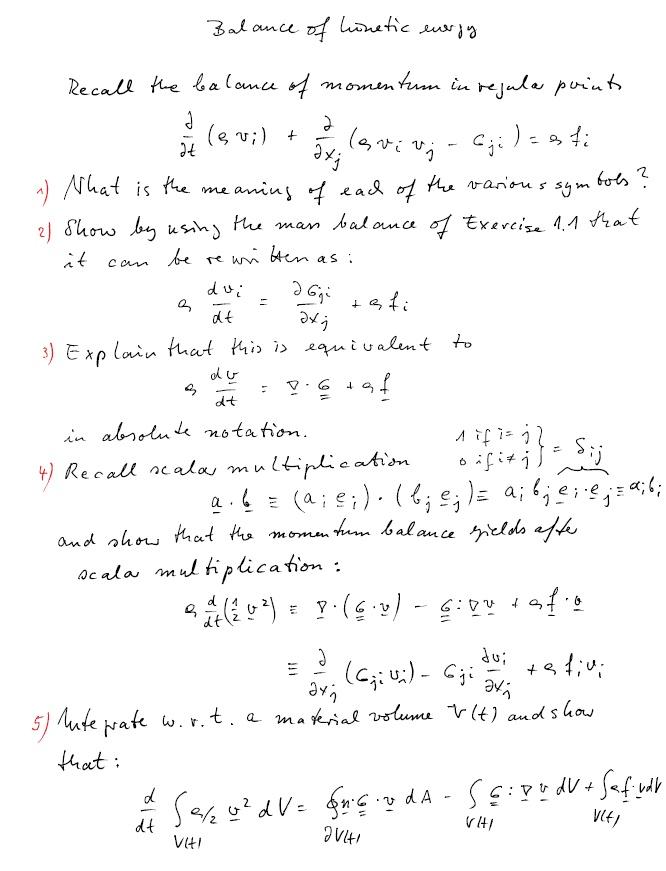 Balance of kinetic energy
Recall the balance of momentum in regular points
∂/∂t (ϱ v_i) + ∂/∂x_j (ϱ v_i v_j - σ_ji) = ϱ f_i
1) What is the meaning of each of the various symbols?
2) Show by using the mass balance of Exercise 1.1 that
it can be rewritten as:
ϱ dv_i/dt = ∂σ_ji/∂x_j + ϱ f_i
3) Explain that this is equivalent to
ϱ dv/dt = ∇ · σ + ϱ f
in absolute notation.
1 if i = j
0 if i ≠ j } = δ_ij
4) Recall scalar multiplication
a · b ≡ (a_i e_i) · (b_j e_j) ≡ a_i b_j e_i · e_j ≡ a_i b_i
and show that the momentum balance yields after
scalar multiplication:
ϱ d/dt (1/2 v²) ≡ ∇ · (σ · v) - σ : ∇ v + ϱ f · v
≡ ∂/∂x_j (σ_ji v_i) - σ_ji ∂v_i/∂x_j + ϱ f_i v_i
5) Integrate w.r.t. a material volume V(t) and show
that:
d/dt ∫_V(t) ϱ/2 v² dV = ∮_∂V(t) n · σ · v dA - ∫_V(t) σ : ∇ v dV + ∫_V(t) ϱ f · v dV